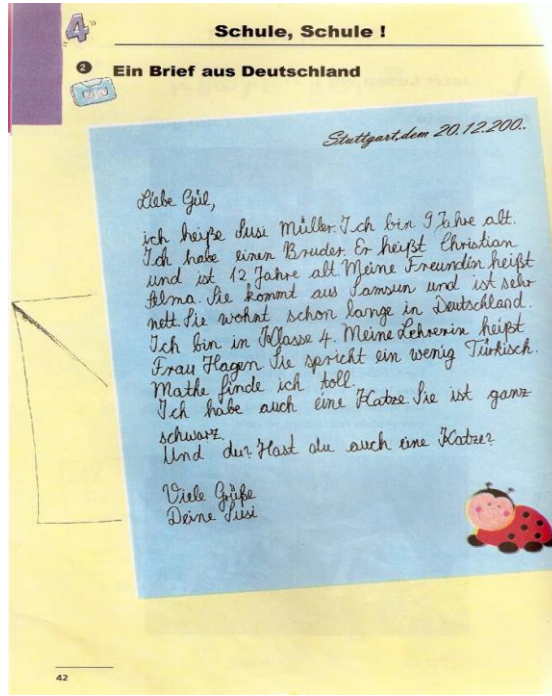 4
Schule, Schule !
2
Ein Brief aus Deutschland
Stuttgart, dem 20.12.200..
Liebe Gül,
ich heiße Susi Müller. Ich bin 9 Jahre alt.
Ich habe einen Bruder. Er heißt Christian
und ist 12 Jahre alt. Meine Freundin heißt
Selma. Sie kommt aus Samsun und ist sehr
nett. Sie wohnt schon lange in Deutschland.
Ich bin in Klasse 4. Meine Lehrerin heißt
Frau Hagen. Sie spricht ein wenig Türkisch.
Mathe finde ich toll.
Ich habe auch eine Katze. Sie ist ganz
schwarz.
Und du? Hast du auch eine Katze?
Viele Grüße
Deine Susi
42